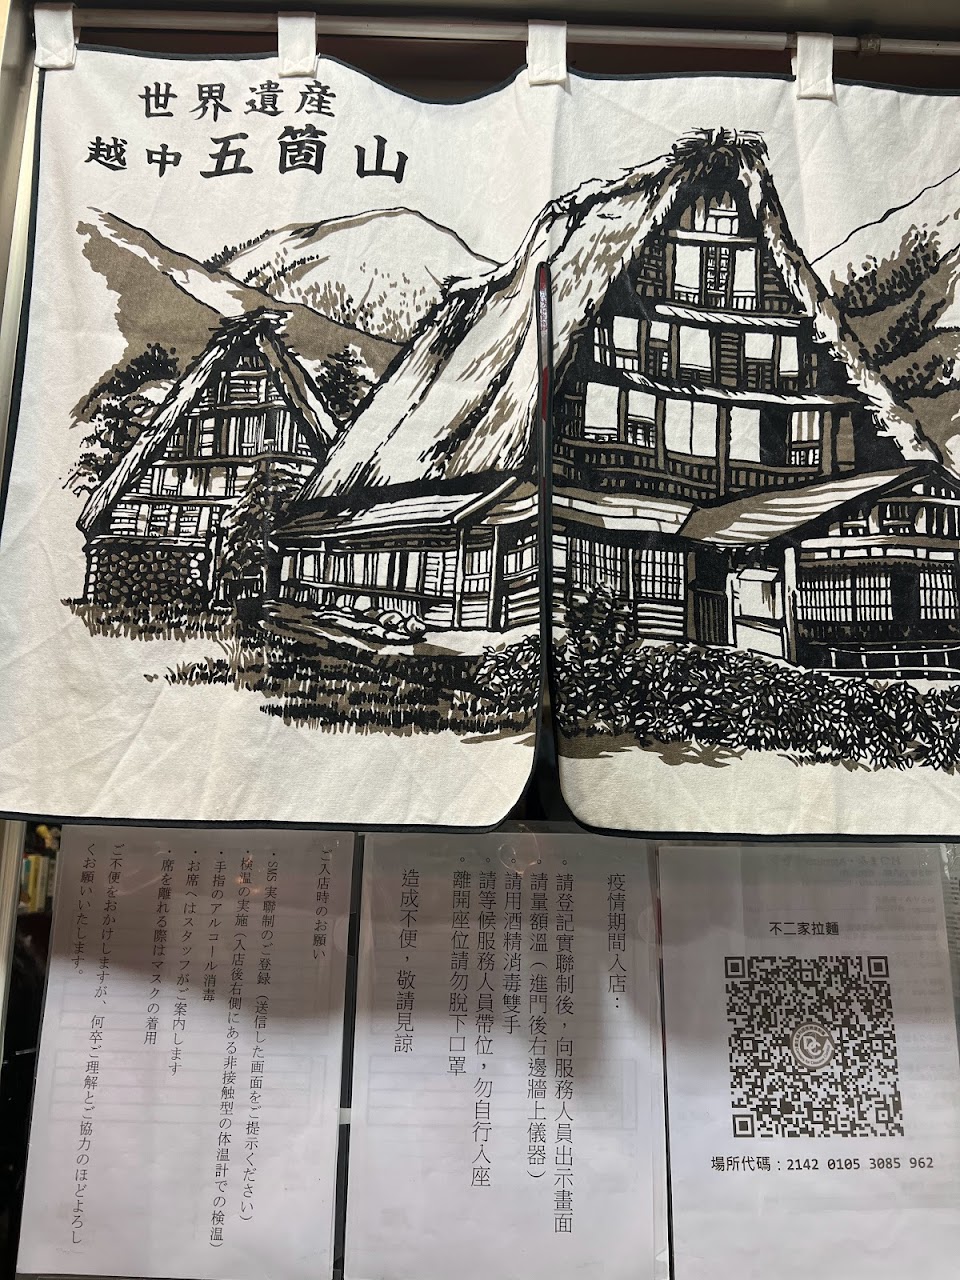 世界遺産
越中五箇山
ご入店時のお願い
・SMS 実聯制のご登録（送信した画面をご提示ください）
・検温の実施（入店後右側にある非接触型の体温計での検温）
・手指のアルコール消毒
・お席へはスタッフがご案内します
・席を離れる際はマスクの着用
ご不便をおかけしますが、何卒ご理解とご協力のほどよろし
くお願いいたします。
疫情期間入店：
。請登記實聯制後，向服務人員出示畫面
。請量額溫（進門後右邊牆上儀器）
。請用酒精消毒雙手
。請等候服務人員帶位，勿自行入座
。離開座位請勿脫下口罩
造成不便，敬請見諒
不二家拉麵
場所代碼：2142 0105 3085 962